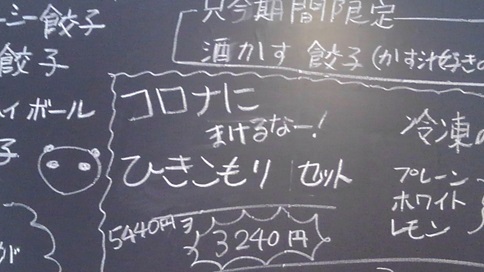 ーミー餃子
餃子
ハイボール
子
が
只今期間限定
酒かす餃子(かす汁好きの
コロナに
まけるなー!
ひきこもり セット
5440円
3240円
冷凍の
プレーン
ホワイト
レモン